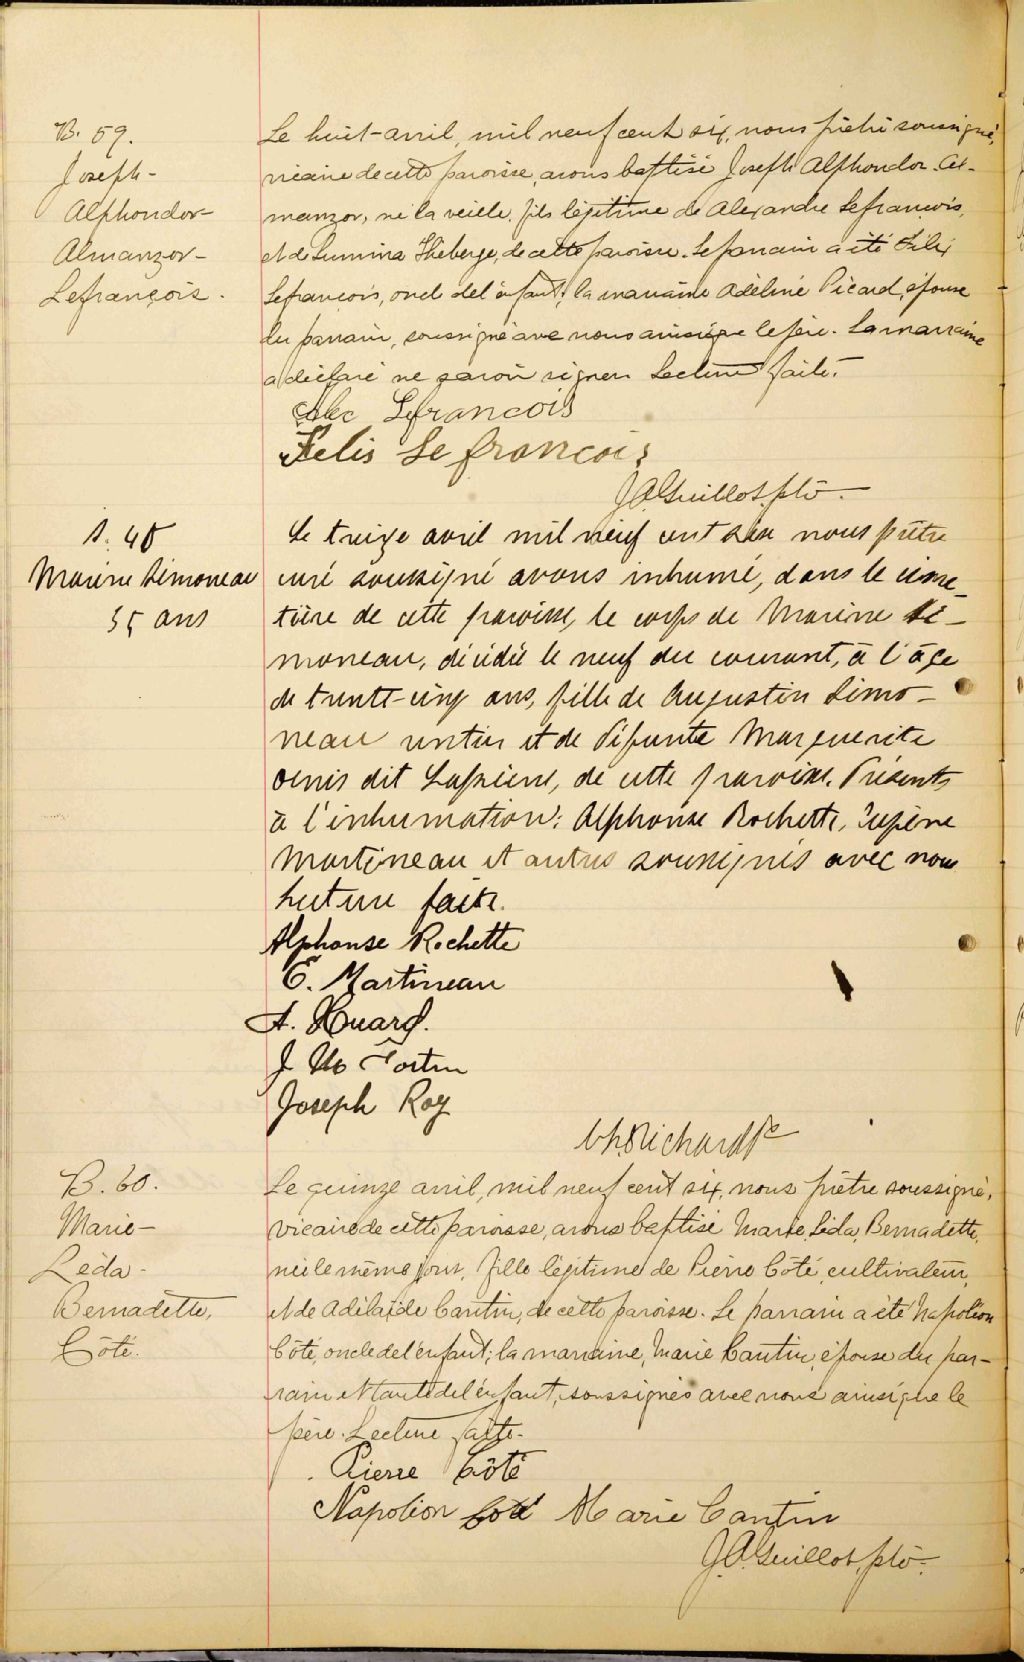 B. 59.
Joseph-
Alphondor-
Almanzor-
Lefrançois.
Le huit avril, mil neuf cent six, nous prêtre soussigné,
vicaire de cette paroisse, avons baptisé Joseph Alphondor Al-
manzor, né la veille, fils légitime de Alexandre Lefrançois,
et de Lumina Théberge, de cette paroisse. Le parrain a été Félix
Lefrançois, oncle de l'enfant; la marraine Adéline Picard, épouse
du parrain, soussigné avec nous ainsi que le père. La marraine
a déclaré ne savoir signer. Lecture faite.
Alec Lefrancois
Felis Lefrancois
J.A. Guillot, ptre
S. 40
Marine Simoneau
35 ans
Le treize avril mil neuf cent six nous prêtre
curé soussigné avons inhumé, dans le cime-
tière de cette paroisse, le corps de Marine Si-
moneau, décédée le neuf du courant, à l'âge
de trente-cinq ans, fille de Augustin Simo-
neau rentier et de Défunte Marguerite
dit de cette paroisse. Présents
à l'inhumation: Alphonse Rochette, Eugène
Martineau et autres soussignés avec nous
Lecture faite.
Alphonse Rochette
E. Martineau
A. Huard.
J Fortin
Joseph Roy
Richard Ptre
B. 60.
Marie-
Léda-
Bernadette,
Côté.
Le quinze avril, mil neuf cent six, nous prêtre soussigné,
vicaire de cette paroisse, avons baptisé Marie, Léda, Bernadette,
née le même jour, fille légitime de Pierre Côté, cultivateur,
et de Adélaïde Cantin, de cette paroisse. Le parrain a été Napoléon
Côté, oncle de l'enfant; la marraine, Marie Cantin, épouse du par-
rain et tante de l'enfant, soussignés avec nous ainsi que le
père. Lecture faite.
Pierre Côté
Napoléon Coté Marie Cantin
J.A. Guillot, ptre.